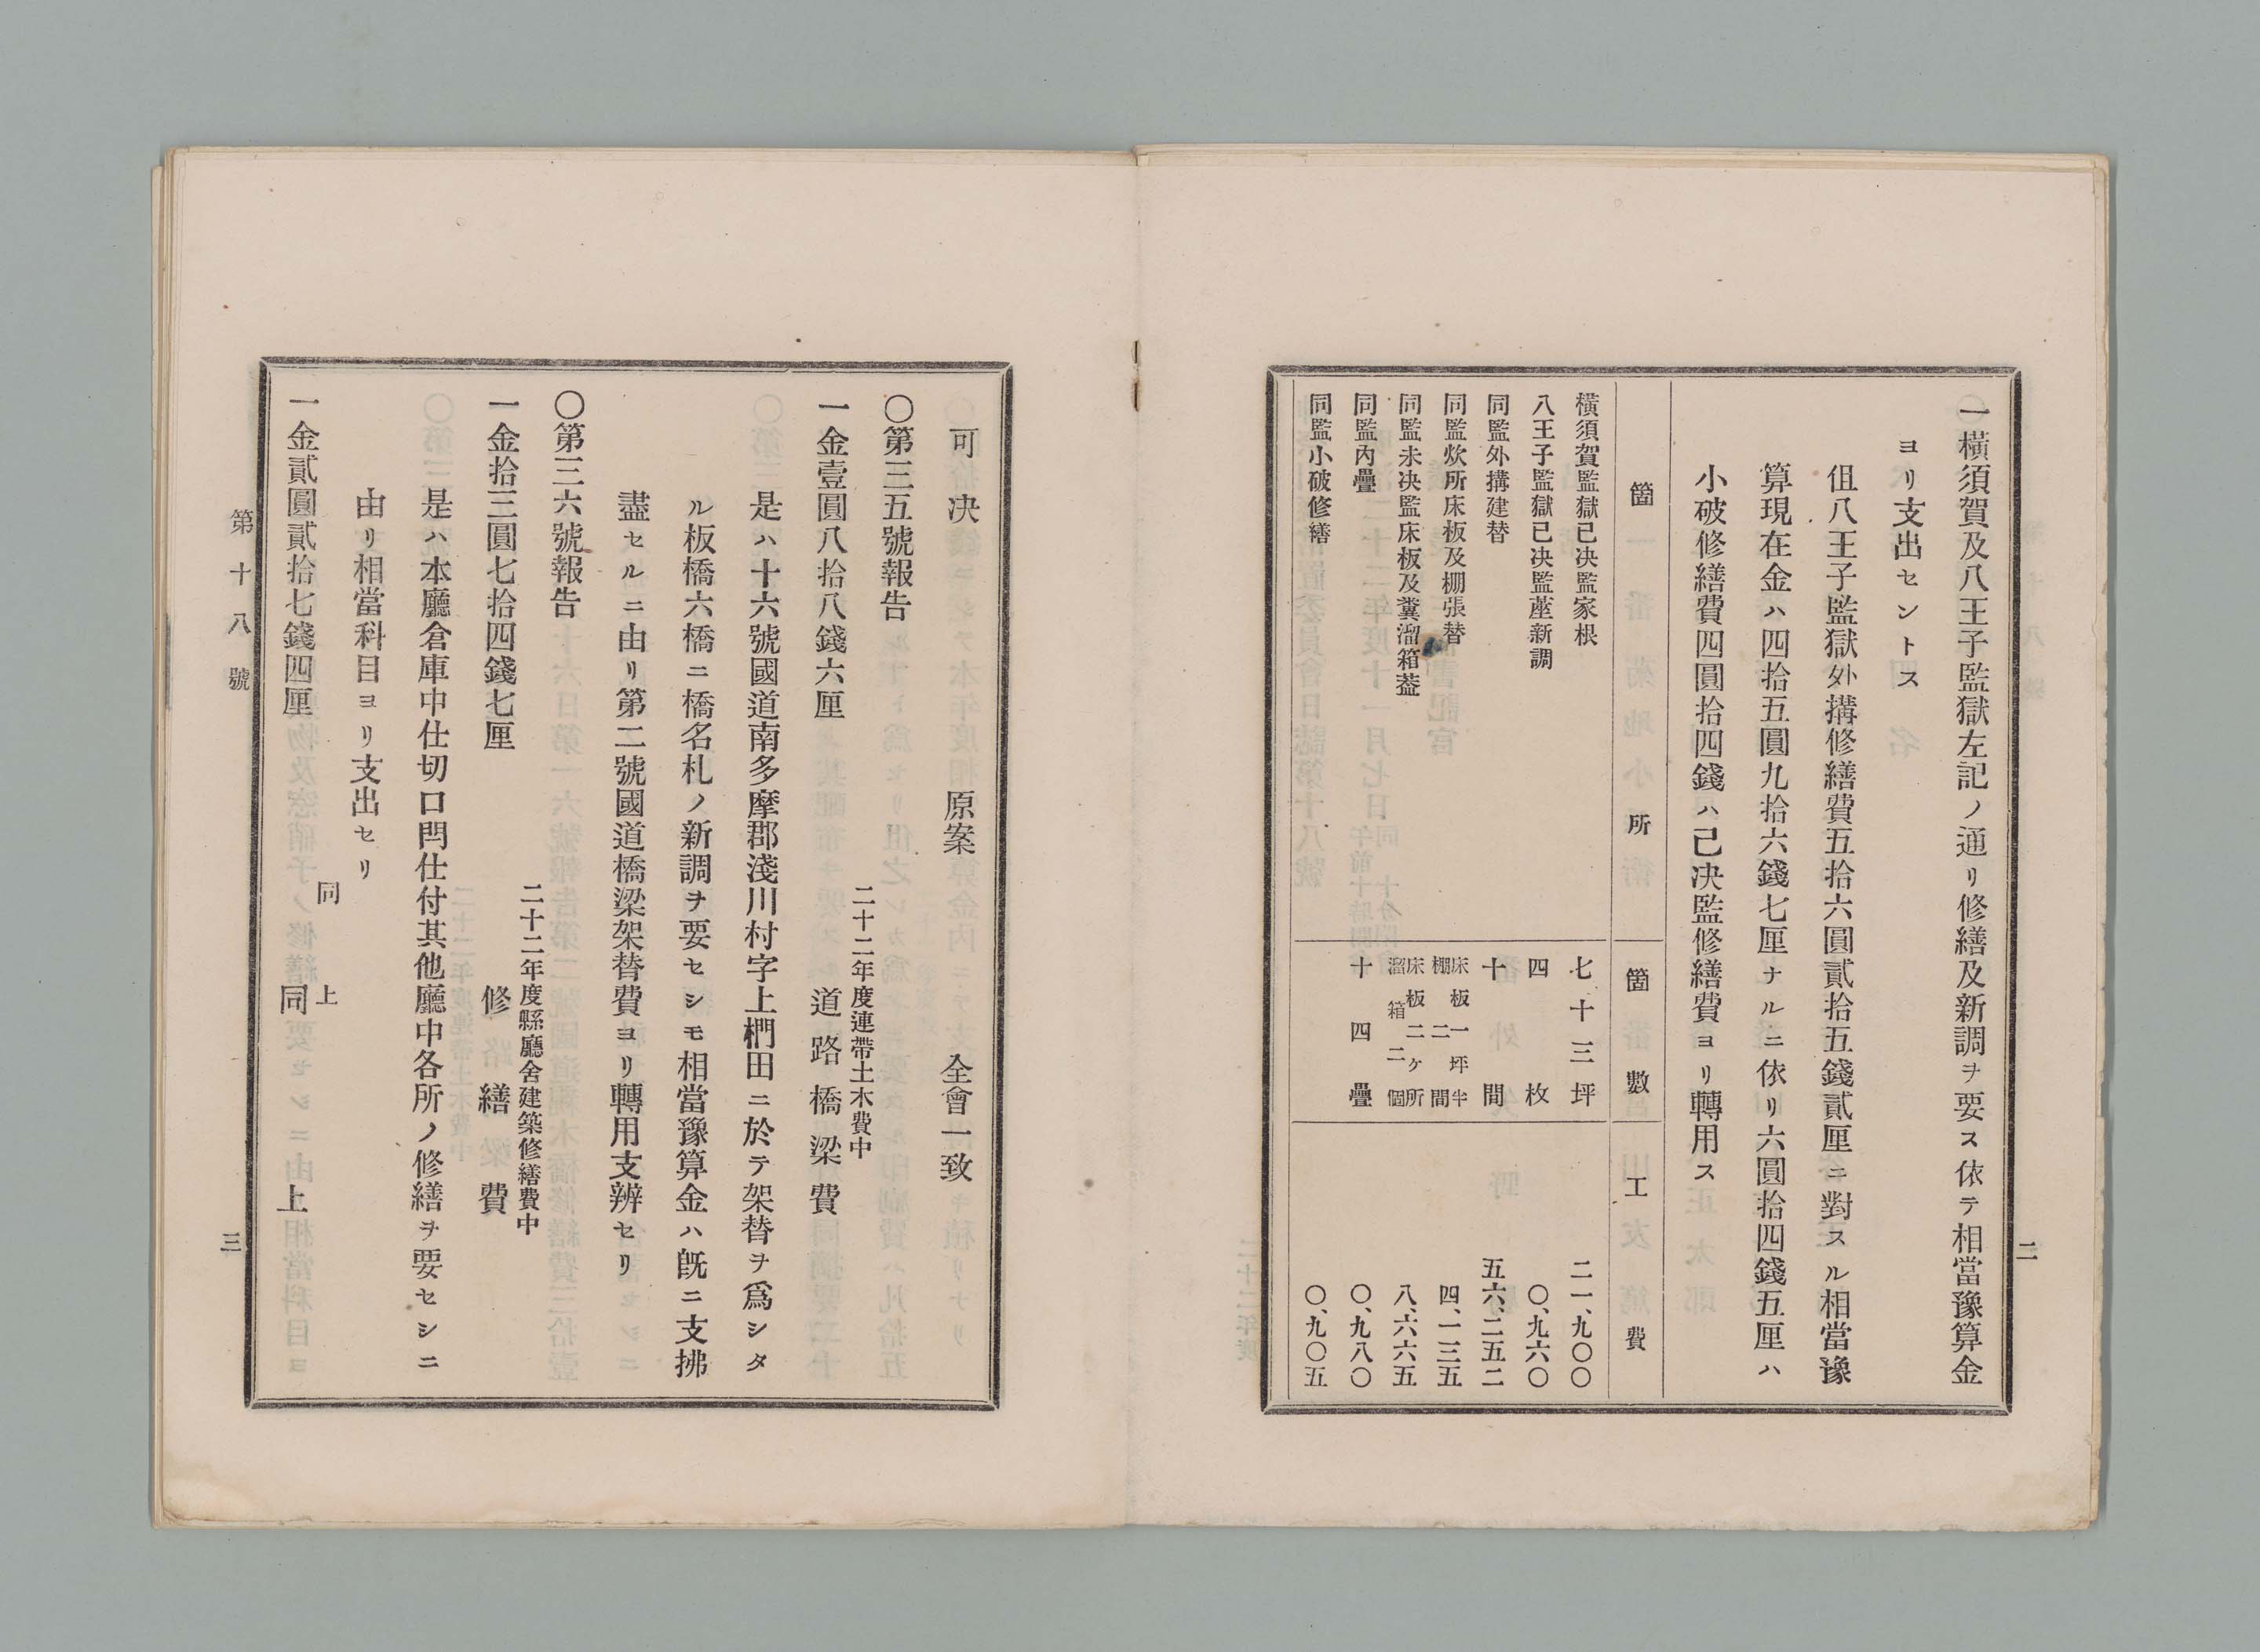 二
一橫須賀及八王子監獄左記ノ通リ修繕及新調ヲ要ス依テ相當豫算金
ヨリ支出セントス
伹八王子監獄外搆修繕費五拾六圓貳拾五錢貳厘ニ對スル相當豫
算現在金ハ四拾五圓九拾六錢七厘ナルニ依リ六圓拾四錢五厘ハ
小破修繕費四圓拾四錢ハ己决監修繕費ヨリ轉用ス
箇所　箇數　工費
橫須賀監獄已决監家根　七十三坪　二一、九〇〇
八王子監獄已决監蓙新調　四枚　〇、九六〇
同監外搆建替　十間　五六、二五二
同監炊所床板及棚張替　床板一坪半　棚二間　四、一三五
同監未决監床板及糞溜箱蓋　床板二ヶ所　溜箱二個　八、六六五
同監內疊　十四疊　〇、九八〇
同監小破修繕　〇、九〇五
可决　原案　全會一致
〇第三五號報告
二十二年度連帶土木費中
一金壹圓八拾八錢六厘　道路橋梁費
是ハ十六號國道南多摩郡淺川村字上椚田ニ於テ架替ヲ爲シタ
ル板橋六橋ニ橋名札ノ新調ヲ要セシモ相當豫算金ハ旣ニ支拂
盡セルニ由リ第二號國道橋梁架替費ヨリ轉用支辨セリ
〇第三六號報告
二十二年度縣廳舍建築修繕費中
一金拾三圓七拾四錢七厘　修繕費
是ハ本廳倉庫中仕切口閂仕付其他廳中各所ノ修繕ヲ要セシニ
由リ相當科目ヨリ支出セリ
同上
一金貳圓貳拾七錢四厘　同上
第十八號
三